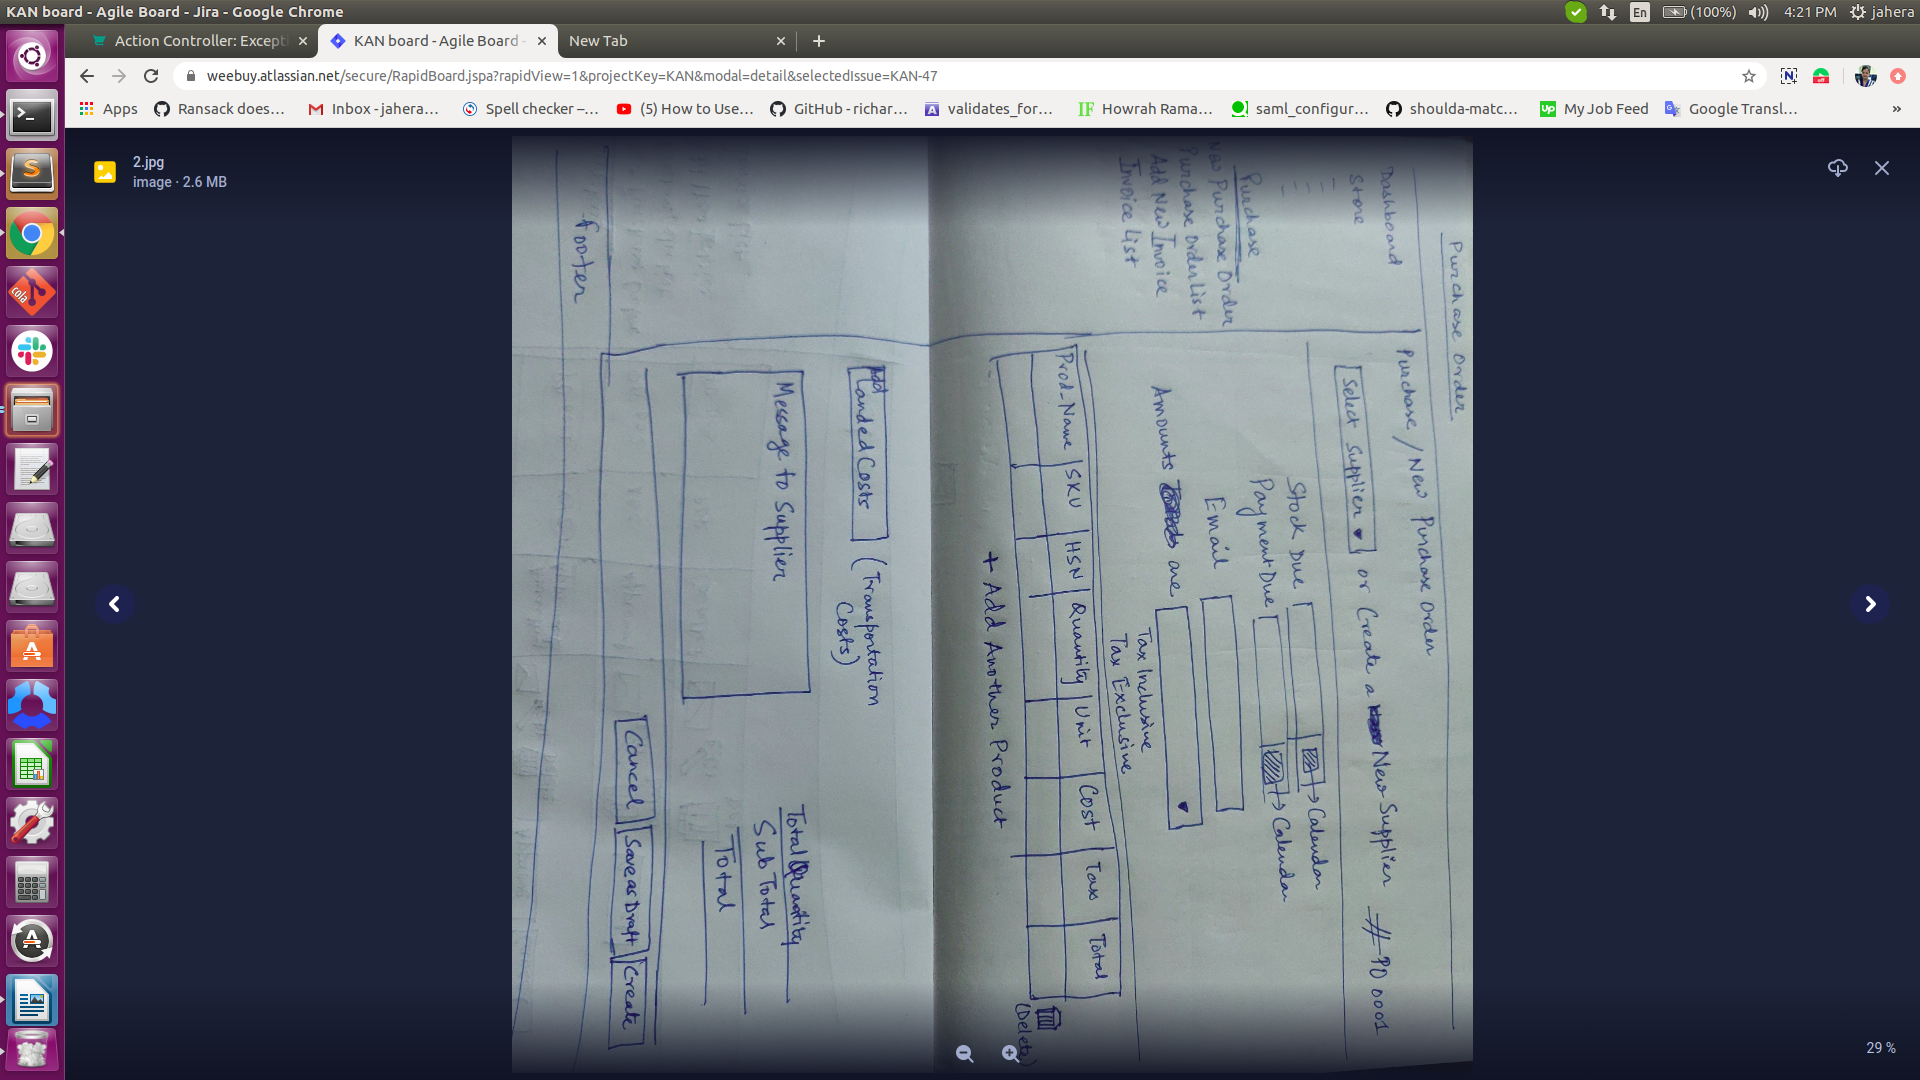 KAN board - Agile Board - Jira - Google Chrome
En
(100%)
4:21 PM
jahera
Action Controller: Except
KAN board - Agile Board -
New Tab
weebuy.atlassian.net/secure/RapidBoard.jspa?rapidView=1&projectKey=KAN&modal=detail&selectedIssue=KAN-47
Apps
Ransack does...
Inbox - jahera...
Spell checker –...
(5) How to Use...
GitHub - richar...
validates_for...
Howrah Rama...
saml_configur...
shoulda-matc...
My Job Feed
Google Transl...
»
2.jpg
image · 2.6 MB
Purchase Order
Dashboard
Store
Purchase
New Purchase Order
Purchase Order List
Add New Invoice
Invoice List
Purchase / New Purchase Order
Select Supplier or Create a New Supplier # PO 0001
Stock Due → Calendar
Payment Due → Calendar
Email
Amounts are
Tax Inclusive
Tax Exclusive
Prod-Name SKU HSN Quantity Unit Cost Tax Total
(Delete)
+ Add Another Product
Add Landed Costs (Transportation Costs)
Message to Supplier
Total Quantity
Sub Total
Total
Cancel Save as Draft Create
footer
29 %